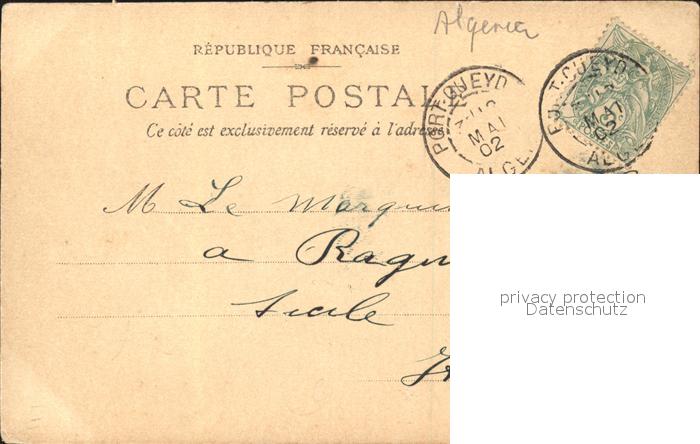 Algeria
RÉPUBLIQUE FRANÇAISE
CARTE POSTALE
Ce côté est exclusivement réservé à l'adresse
PORT-GUEYD
MAI
02
ALGE
PORT-GUEYD
MAI
02
ALG
POSTES
M Le Marquis
a Ragu
Sicile
privacy protection
Datenschutz